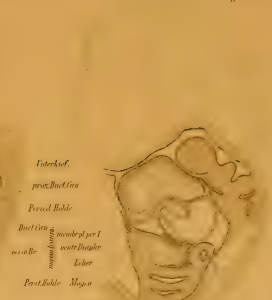 Unterkief.
prox. Duct Cuv
Pericd Höhle
Duct Cuv
membr pl per I
ventr Diaphr
Leber
Perit. Höhle Magen